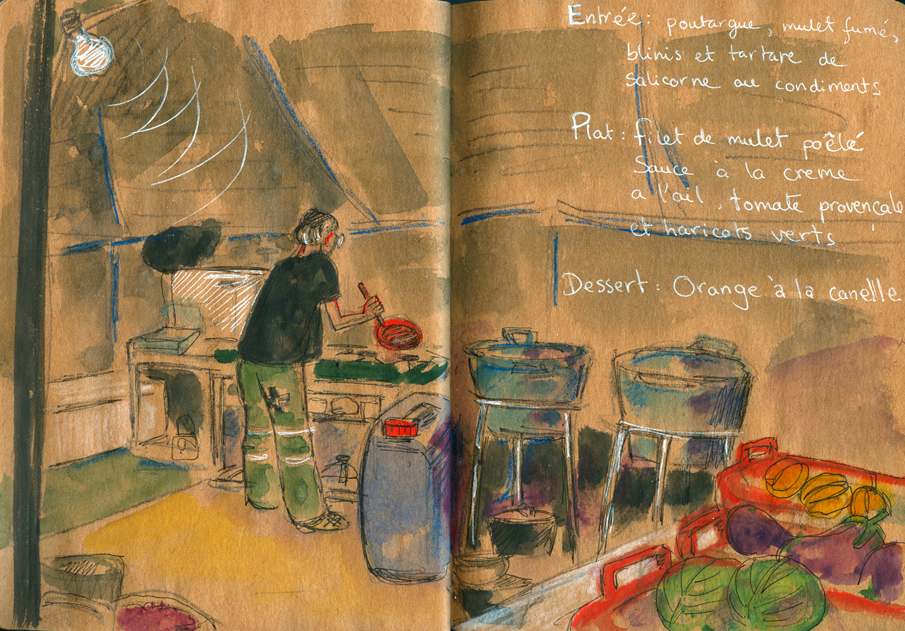 Entrée : poutargue, mulet fumé,
blinis et tartare de
salicorne au condiments
Plat : filet de mulet poêlé
Sauce à la creme
a l'ail, tomate provençale
et haricots verts
Dessert : Orange à la canelle